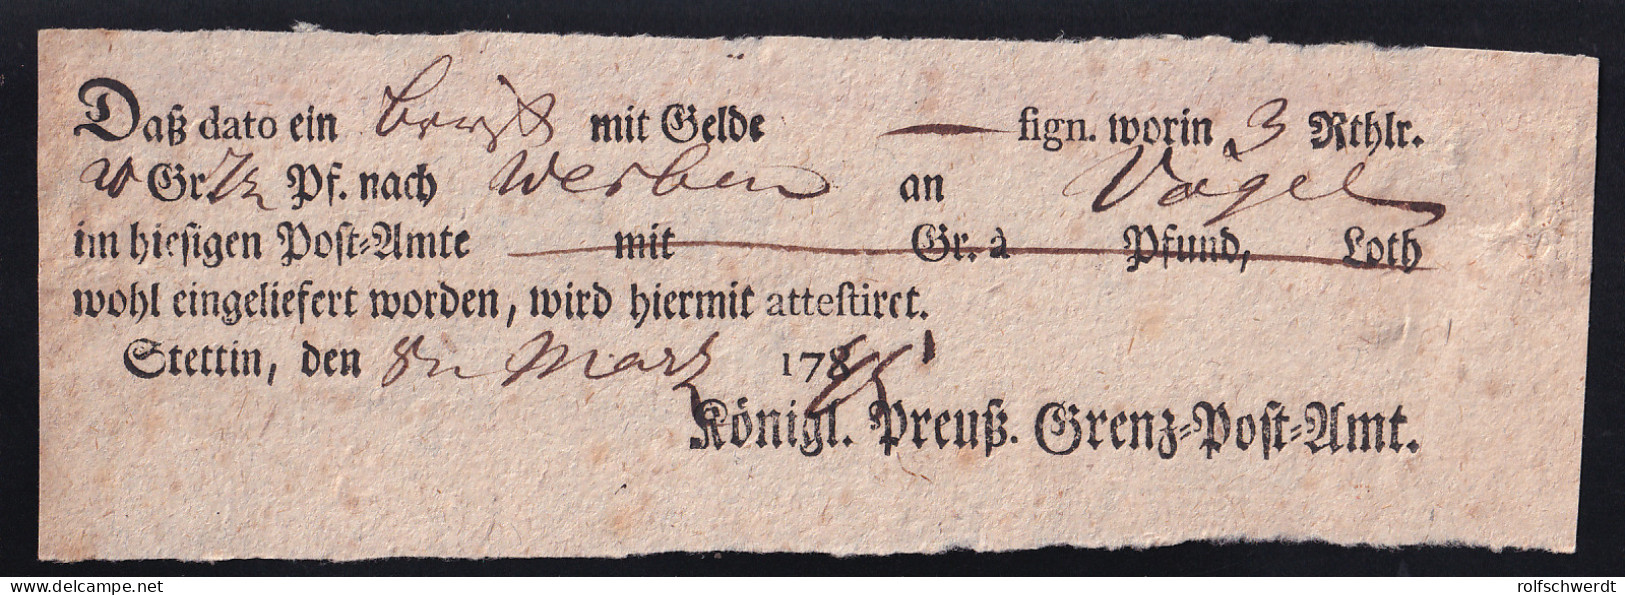 Daß dato ein mit Gelde — sign. worin 3 Rthlr.
Gr. Pf. nach Werben an Vogel
im hiesigen Post-Amte mit Gr. à Pfund, Loth
wohl eingeliefert worden, wird hiermit attestiret.
Stettin, den 8n Martz 178
Königl. Preuß. Grenz-Post-Amt.
delcampe.net
rolfschwerdt